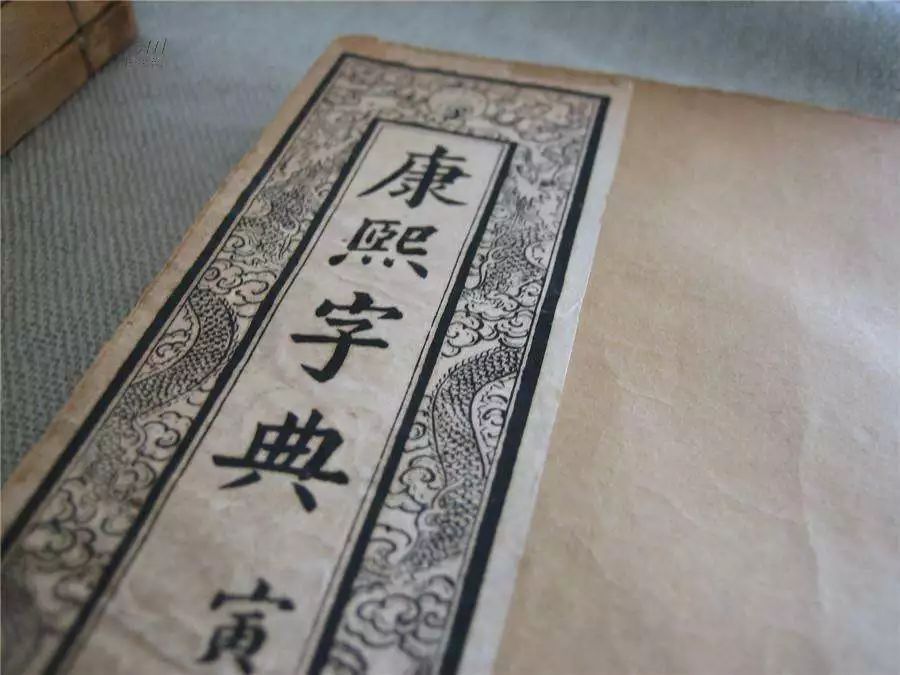 康熙字典 寅